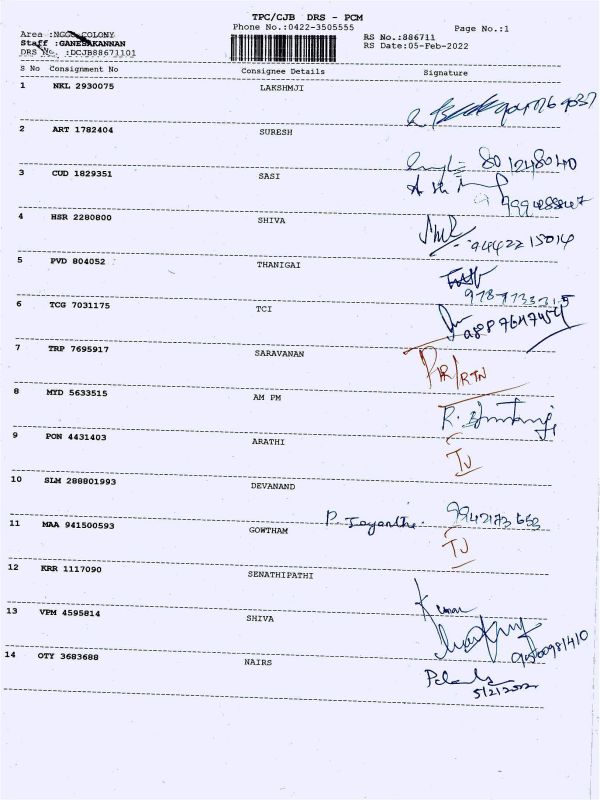 TPC/CJB DRS - PCM
Phone No.:0422-3505555
Page No.:1
Area :NGOO COLONY
Staff :GANESAKANNAN
DRS No. :DCJB88671101
RS No.:886711
RS Date:05-Feb-2022
S No Consignment No Consignee Details Signature
1 NKL 2930075 LAKSHMJI
2 ART 1782404 SURESH
8012480140
3 CUD 1829351 SASI
4 HSR 2280800 SHIVA
9442215014
5 PVD 804052 THANIGAI
6 TCG 7031175 TCI
7 TRP 7695917 SARAVANAN
8 MYD 5633515 AM PM
R.
9 PON 4431403 ARATHI
10 SLM 288801993 DEVANAND
11 MAA 941500593 GOWTHAM P. Jayanthi.
12 KRR 1117090 SENATHIPATHI
Kumar
13 VPM 4595814 SHIVA
14 OTY 3683688 NAIRS
5/2/2022